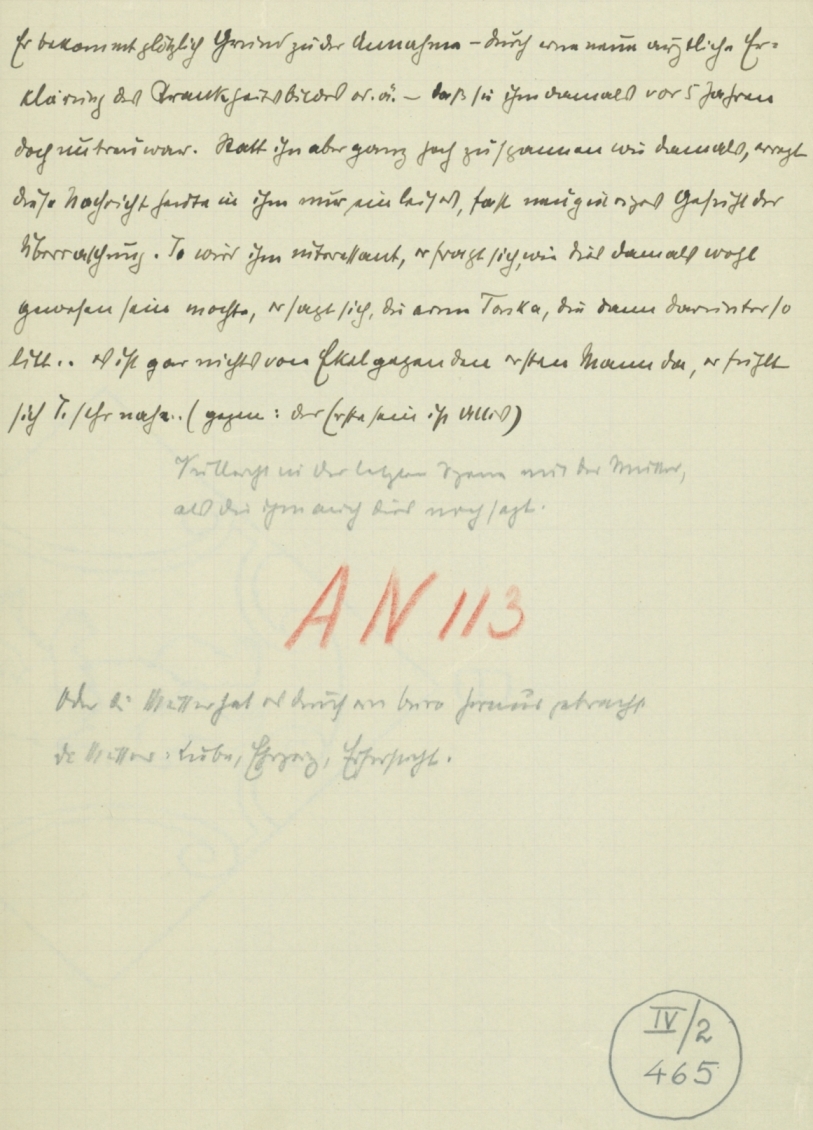 Er bekommt plötzlich Grund zu der Annahme – durch eine neue ärztliche Er-
klärung des Krankheitsbildes od. ä. – daß sie ihm damals vor 5 Jahren
doch untreu war. Statt ihn aber ganz hoch zu spannen wie damals, erregt
diese Nachricht heute in ihm nur ein leises, fast neugieriges Gefühl der
Überraschung. To wird ihm interessant, er fragt sich, wie dies damals wohl
gewesen sein mochte, er sagt sich, die arme Tonka, die dann darunter so
litt.. es ist gar nichts von Ekel gegen den ersten Mann da, er fühlt
sich T. sehr nahe.. (gegen: der Erste sein ist Alles)
Vielleicht in der letzten Szene mit der Mutter,
als die ihm auch dies noch sagt.
AN 113
Oder die Mutter hat es durch ein büro heraus gebracht
die Mutter: Liebe, Ehrgeiz, Eifersucht.
IV/2
465